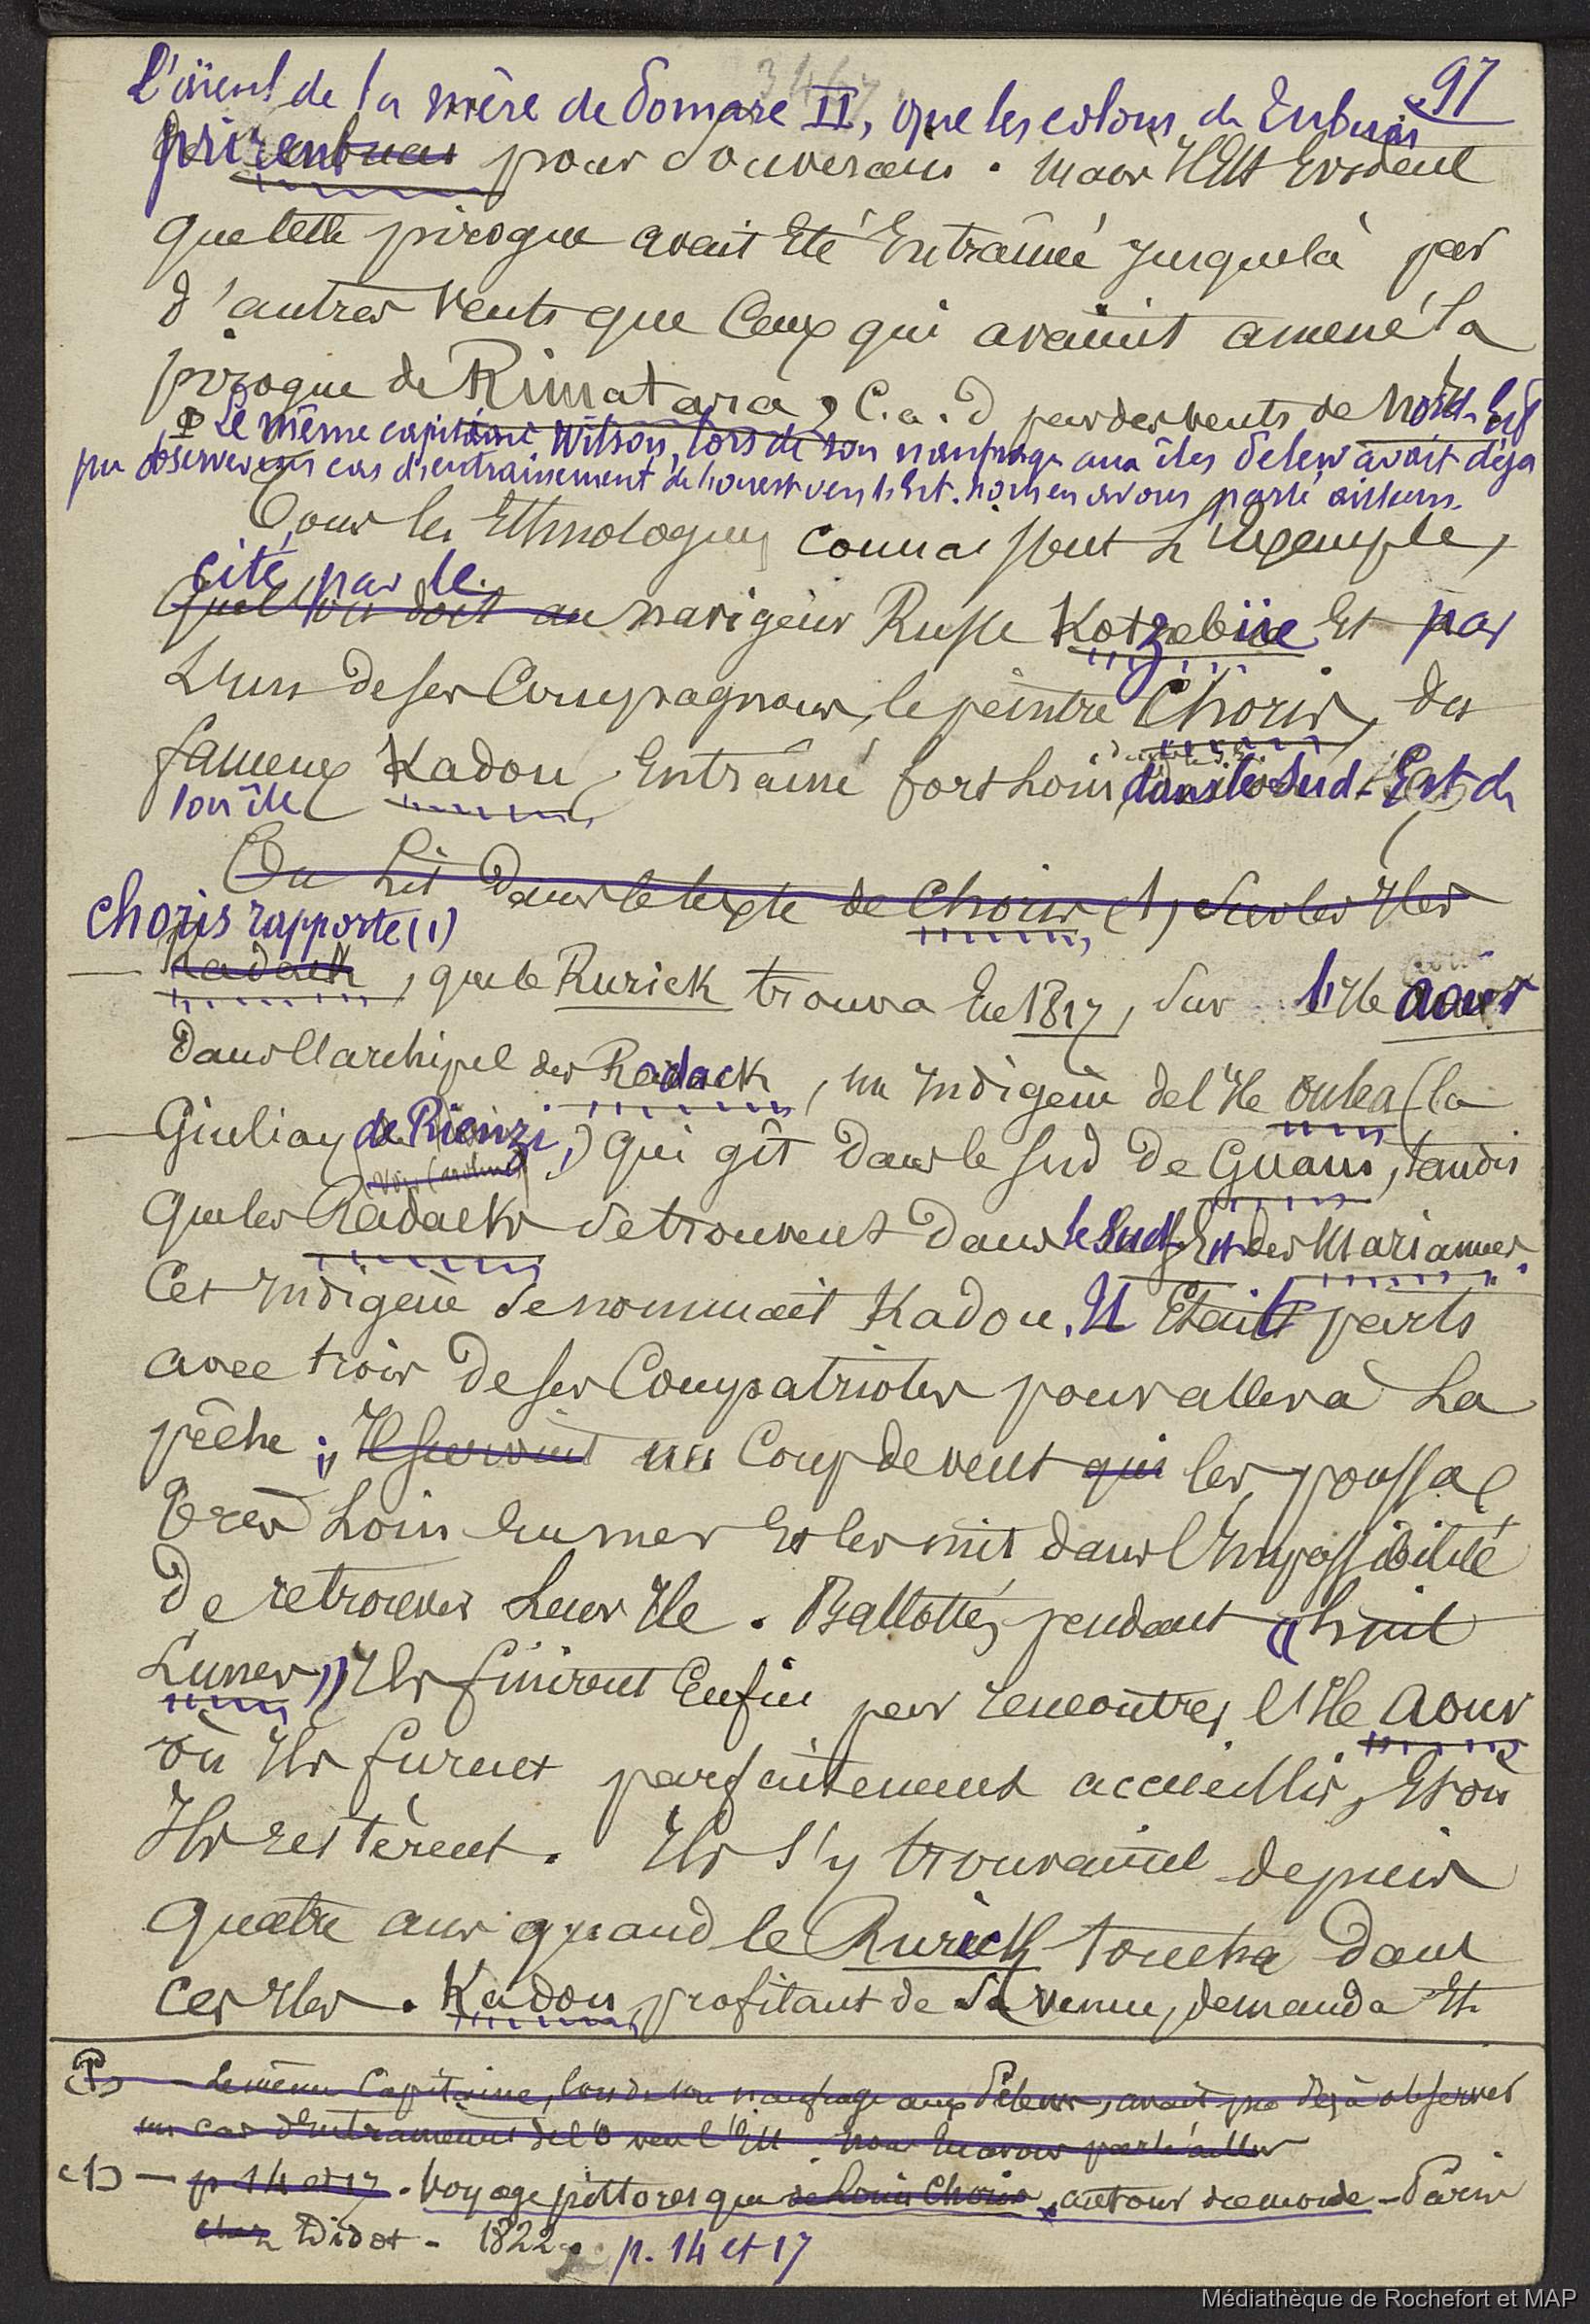 97
L'aïeul de la mère de Pomare II, que les colons de Tubuai
prirent pour Souverain. Mais Il Est Evident
que cette pirogue avait Eté Entraînée jusque là par
d'autres vents que Ceux qui avaient amené la
pirogue de Rimatara, C. a. d par des vents de Nord-Est
Le même capitaine Wilson, lors de son naufrage aux îles Pelew avait déjà
pu observer un cas d'entrainement de l'ouest vers l'Est. nous en avons parlé ailleurs.
Tous les Ethnologues Connaissent L'Exemple,
cité par le
quel on doit au navigeur Russe Kotzebüe Et par
L'un de ses Compagnons, le peintre Choris, du
fameux Kadou, Entraîné fort Loin dans le Sud-Est de
son île
On Lit Dans le texte de Choris (1) Sur les Iles
Choris rapporte (1)
Radack, que le Rurick trouva En 1817, Sur l'Ile Aour
Dans l'archipel des Radack, un Indigène de l'Ile Oulea (la
Giuliay de Rienzi,) qui gît Dans le Sud De Guam, tandis
que les Radacks se trouvent Dans le Sud-Est des Mariannes.
Cet Indigène Se nommait Kadou. Il Etait parti
avec trois De ses Compatriotes pour aller à La
pêche; Il survint un Coup de vent qui les poussa
très Loin En mer Et les mit dans l'Impossibilité
De retrouver Leur Ile. Ballottés pendant "huit
Lunes", Ils finirent Enfin par rencontrer l'Ile Aour
où Ils furent parfaitement accueillis, Et où
Ils restèrent. Ils s'y trouvaient depuis
quatre ans quand le Rurick toucha Dans
Ces Iles. Kadou, profitant de Sa venue, demanda Et
— Le même Capitaine, lors de son naufrage aux Pelew, avait pu Déjà observer
un cas d'Entrainement de l'O vers l'Est. Nous En avons parlé ailleurs
(1) — p 14 et 17. Voyage pittoresque de Louis Choris, autour du monde - Paris
chez Didot - 1822. p. 14 et 17
Médiathèque de Rochefort et MAP